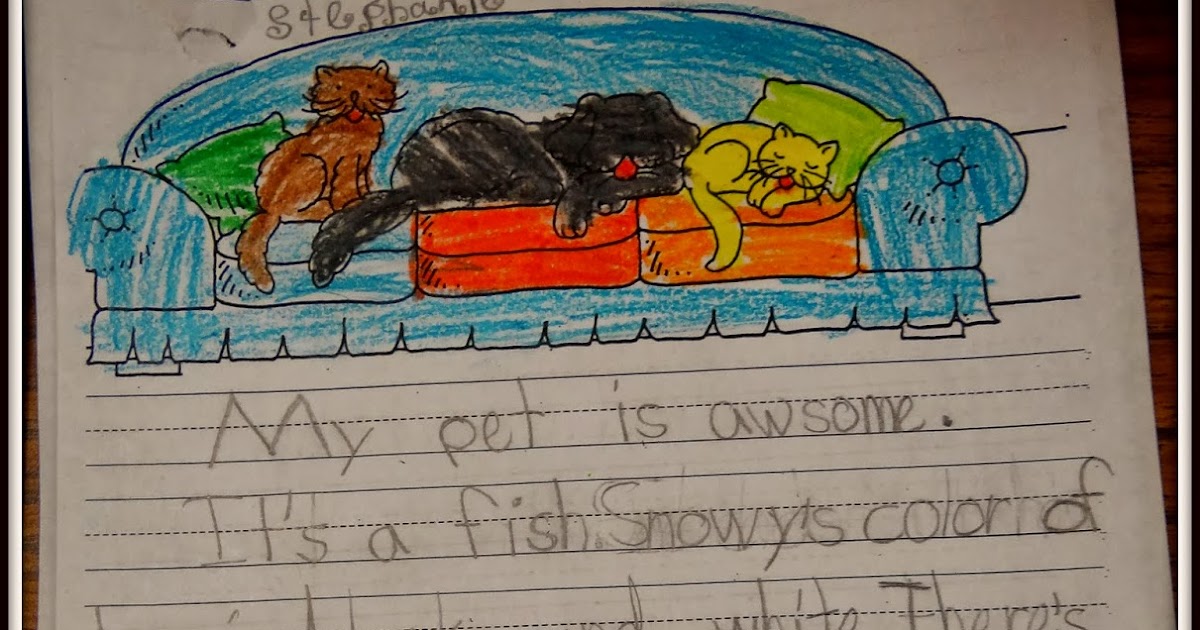 Stephanie
My pet is awsome.
It's a fish. Snowy's color of
and white There's